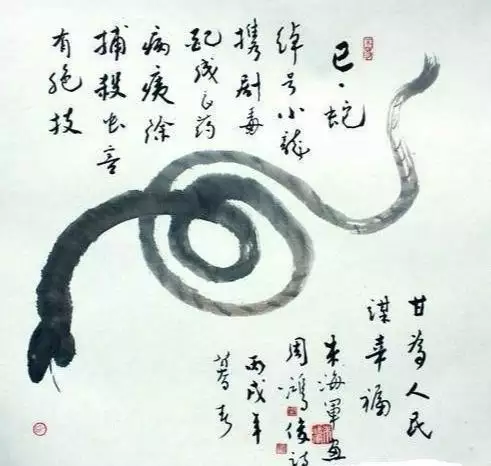 巳、蛇
绰号小龍
携剧毒
配成良药
病痍除
捕殺虫害
有绝技
甘為人民
谋幸福
朱海軍画
周鴻俊诗
丙戌年
暮春